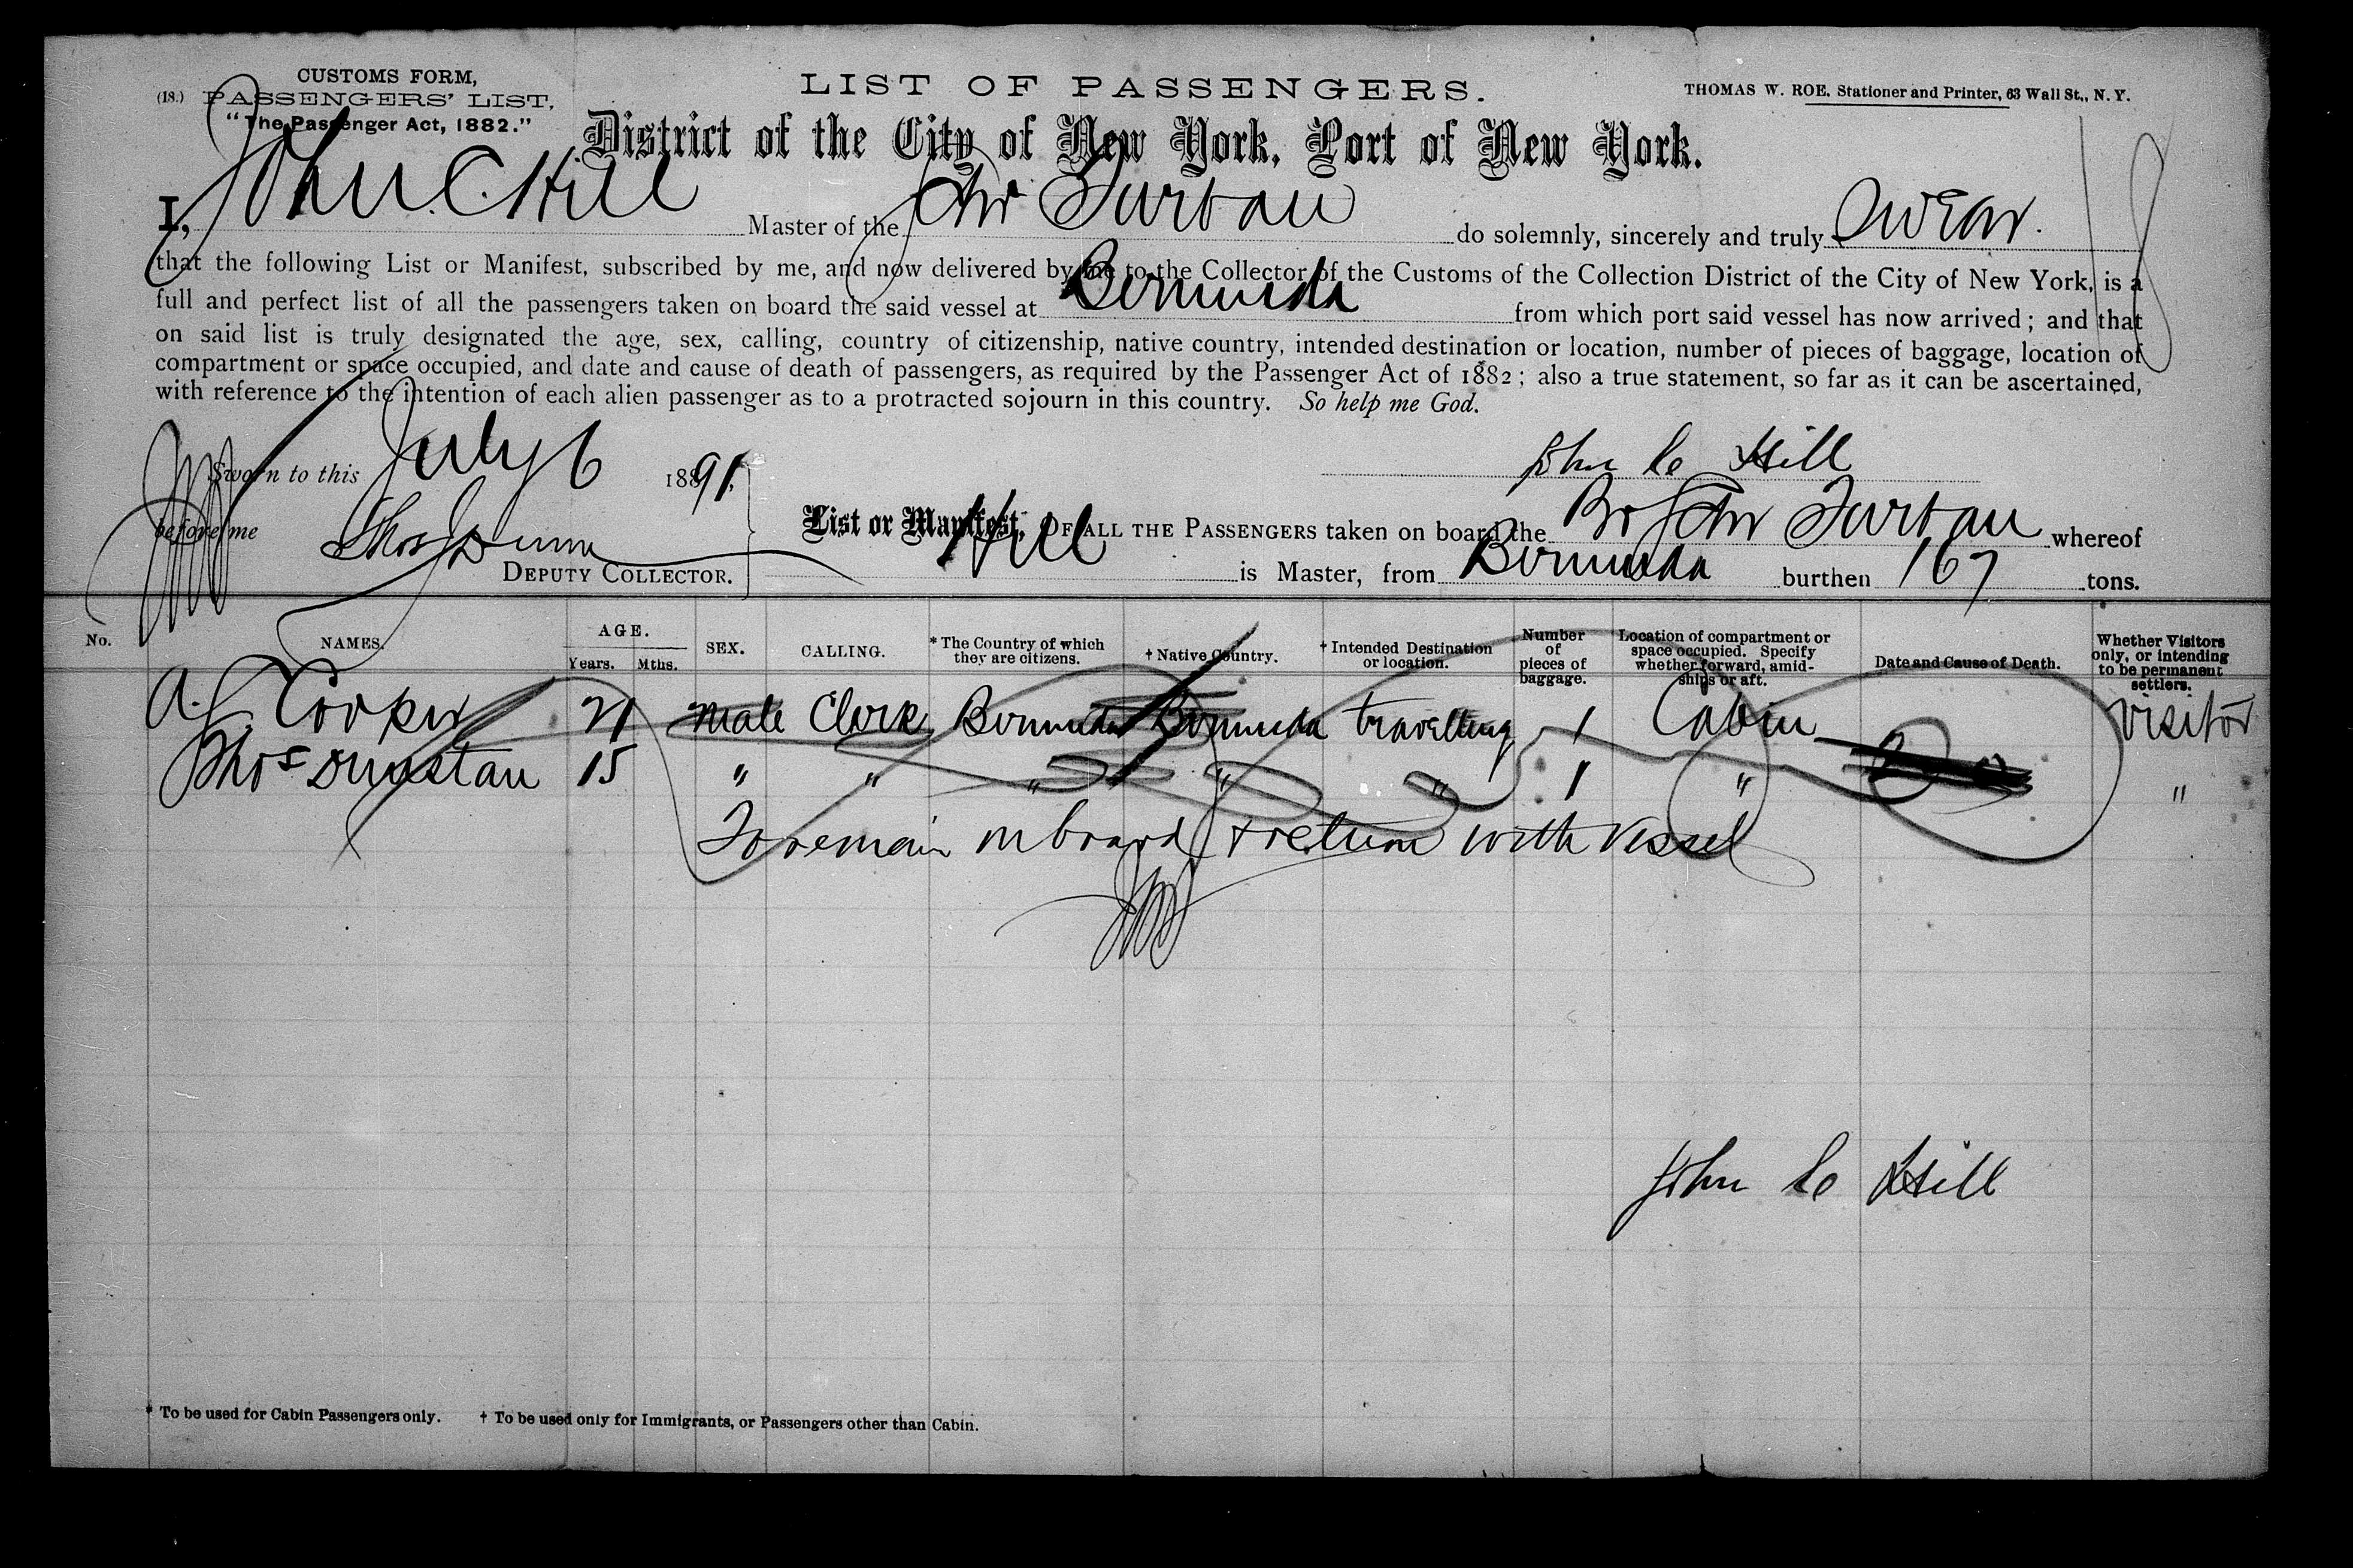 (18.) CUSTOMS FORM,
PASSENGERS' LIST,
"The Passenger Act, 1882."
LIST OF PASSENGERS.
THOMAS W. ROE, Stationer and Printer, 63 Wall St., N. Y.
District of the City of New York, Port of New York.
I, John C. Hill Master of the Schr Turban do solemnly, sincerely and truly swear.
that the following List or Manifest, subscribed by me, and now delivered by me to the Collector of the Customs of the Collection District of the City of New York, is a
full and perfect list of all the passengers taken on board the said vessel at Bermuda from which port said vessel has now arrived; and that
on said list is truly designated the age, sex, calling, country of citizenship, native country, intended destination or location, number of pieces of baggage, location of
compartment or space occupied, and date and cause of death of passengers, as required by the Passenger Act of 1882; also a true statement, so far as it can be ascertained,
with reference to the intention of each alien passenger as to a protracted sojourn in this country. So help me God.
Sworn to this July 6 1891.
John C Hill
before me Thos Dunn
DEPUTY COLLECTOR.
List or Manifest, OF ALL THE PASSENGERS taken on board the Br Schr Turban whereof
Hill is Master, from Bermuda burthen 167 tons.
No. NAMES. AGE. Years. Mths. SEX. CALLING. * The Country of which they are citizens. † Native Country. † Intended Destination or location. Number of pieces of baggage. Location of compartment or space occupied. Specify whether forward, amidships or aft. Date and Cause of Death. Whether Visitors only, or intending to be permanent settlers.
Cooper 21 Male Clerk Bermuda Bermuda travelling 1 Cabin Visitor
Thos Dunstan 15 " " " " " 1 " "
To remain on board & return with vessel
John C Hill
* To be used for Cabin Passengers only. † To be used only for Immigrants, or Passengers other than Cabin.